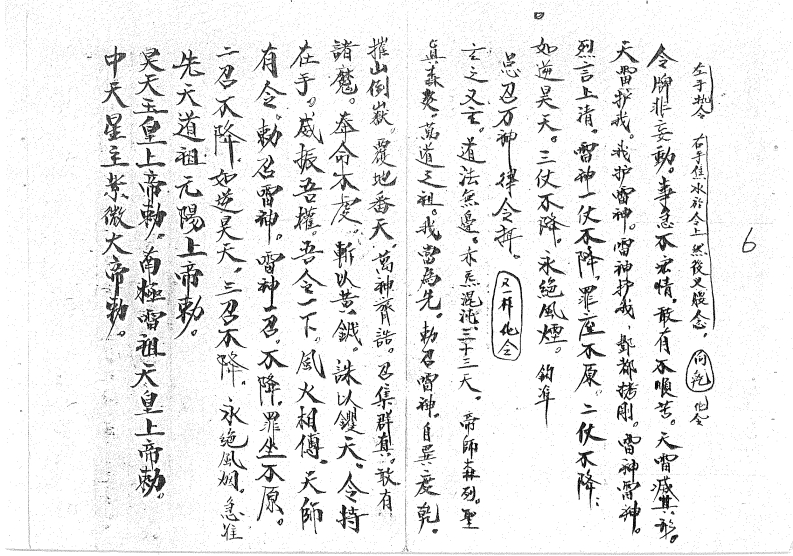 左手执令 右手住水於令上 然後又腹念。 向乾 化令
令牌非妄動。事急不容情。敢有不順者。天雷滅其形。
天雷护我。我护雷神。雷神护我、酆都猛刚。雷神雷神。
烈言上清。雷神一仗不降。罪座不原。二仗不降、
如逆昊天。三仗不降。永絕風煙。 鈞準
总召万神律令訶。 又样化仝
言之又玄。道法無邊。亦系混沌、三十三天。帝師森列。聖
真森羅。萬道之祖。我当為先。勅召雷神。自巽度乾。
摧山倒嶽。覆地番天。萬神齊誥。召集群真。敢有
諸魔。奉命不虔。斬以黃鉞。誅以钁天。令持
在手。威振吾權。吾令一下。風火相傳。天師
有令。勅召雷神。雷神一召。不降。罪坐不原。
二召不降。如逆昊天。三召不降。永絕風烟。急准
先天道祖元陽上帝勅。
昊天玉皇上帝勅。南極雷祖天皇上帝勅。
中天星主紫微大帝勅。
6